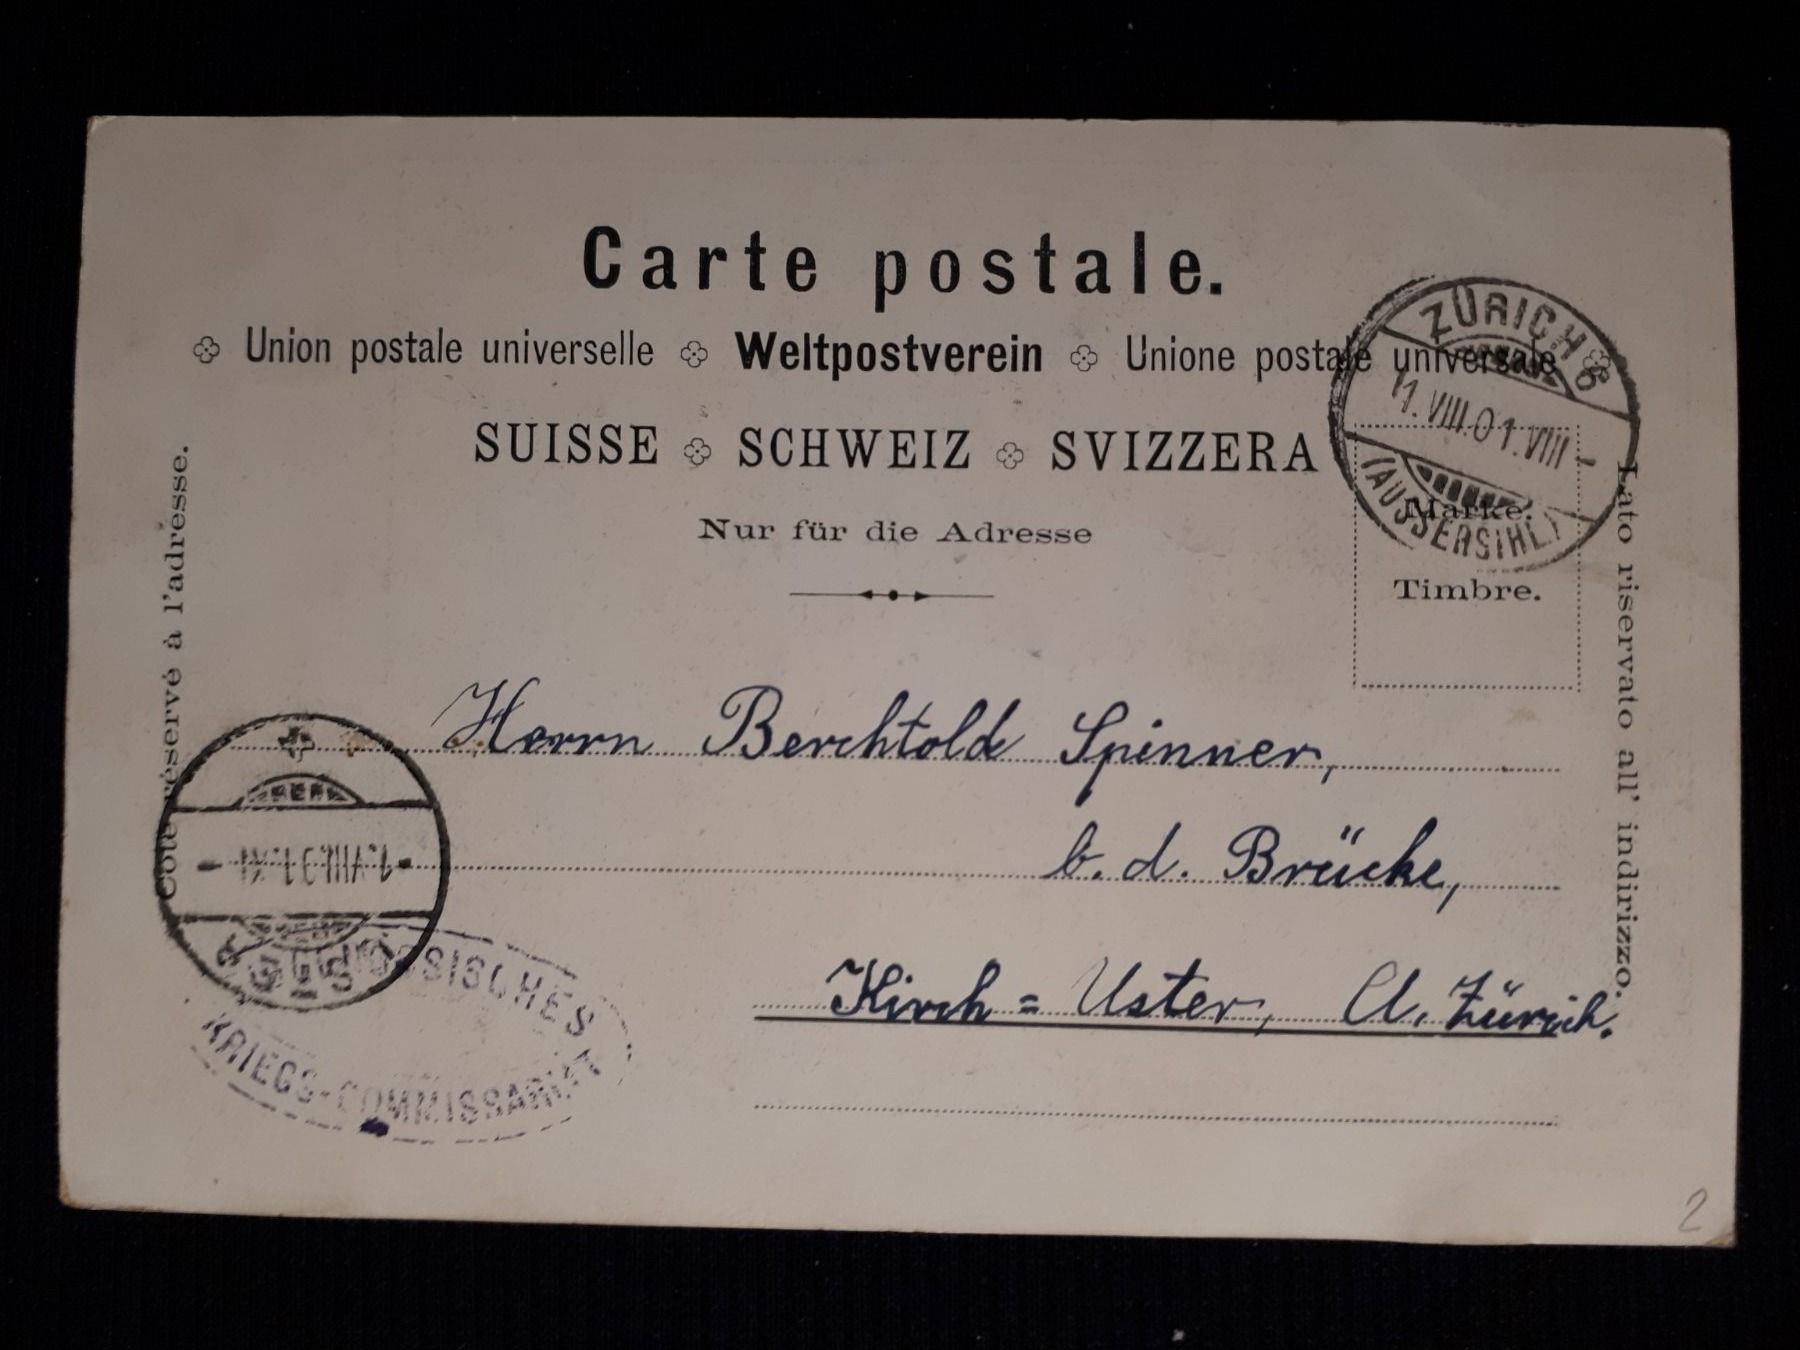 Carte postale.
Union postale universelle Weltpostverein Unione postale universale
SUISSE SCHWEIZ SVIZZERA
Nur für die Adresse
Côté réservé à l'adresse.
Lato riservato all' indirizzo.
Marke.
Timbre.
ZÜRICH 6
11.VIII.01.VIII-
(AUSSERSIHL)
Herrn Berchtold Spinner,
b. d. Brücke,
Kirch = Uster, Ct. Zürich.
KRIEGS-COMMISSARIAT
2